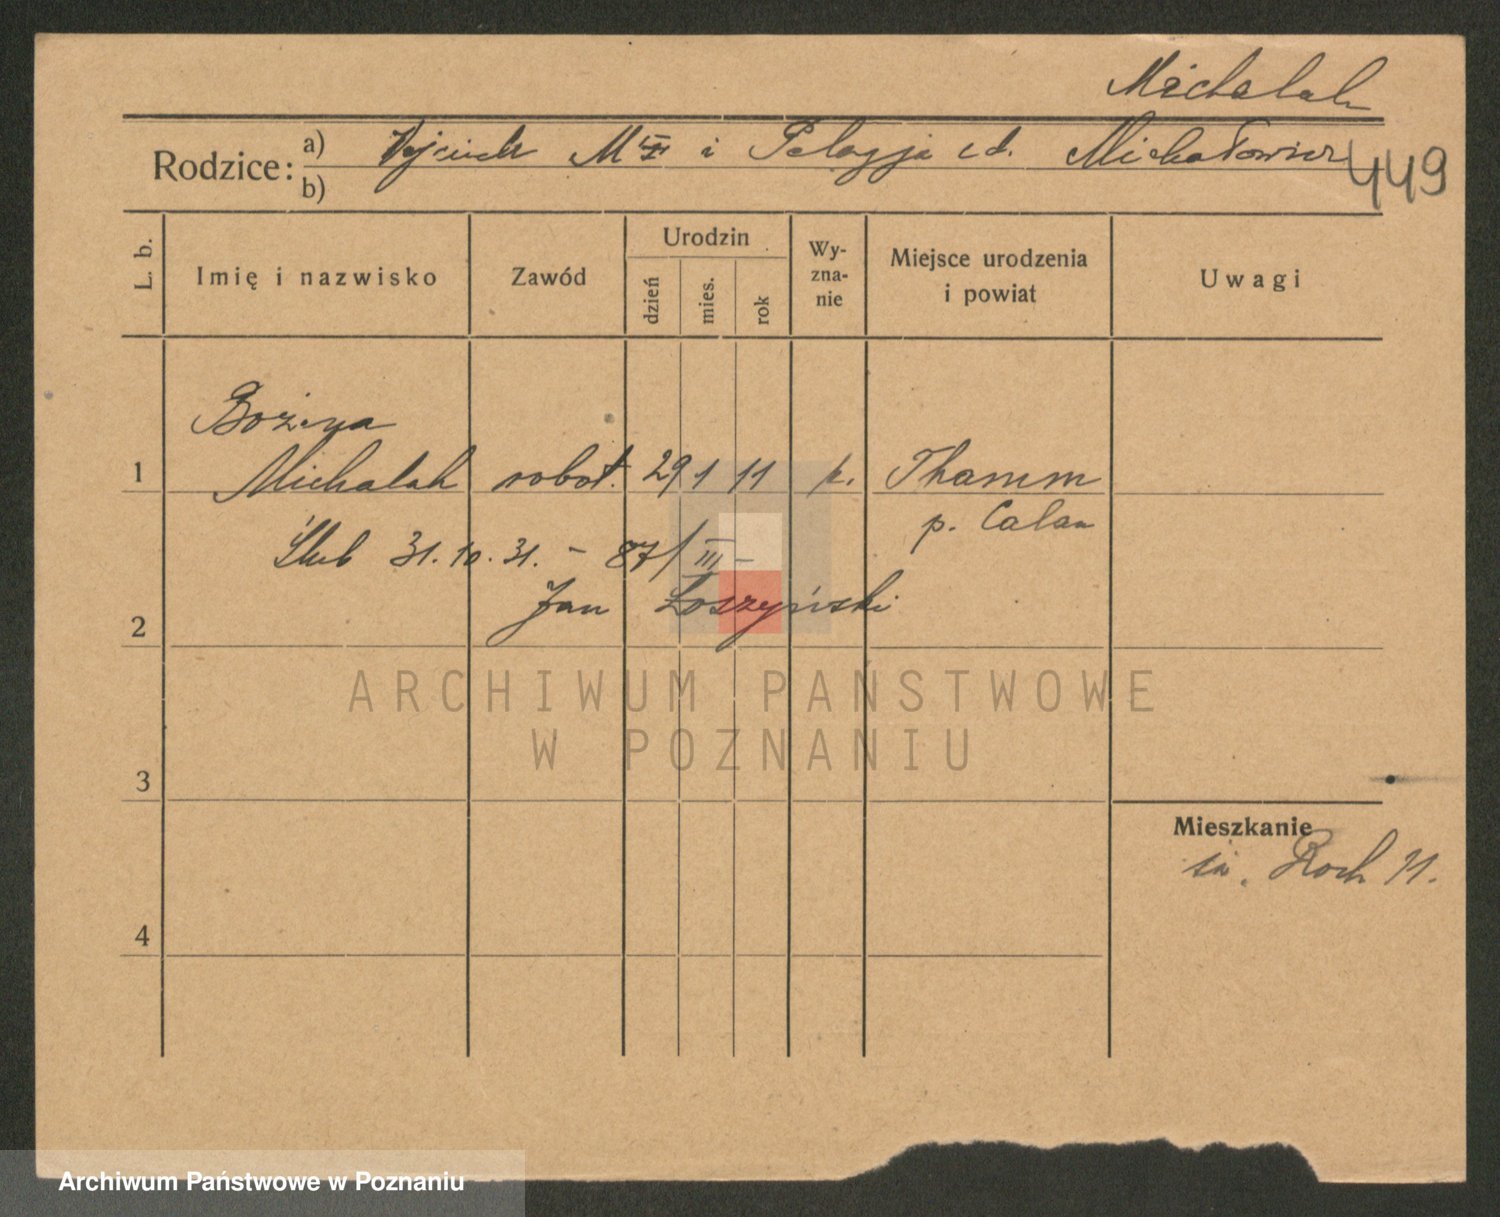 Michalak
Rodzice: a) Wojciech i Pelagja Michałowicz
b)
449
L. b.
Imię i nazwisko
Zawód
Urodzin
dzień
mies.
rok
Wy-
zna-
nie
Miejsce urodzenia
i powiat
Uwagi
Bożena
1 Michalak robot. 29 1 11 k. Thamm
p. Calau
Ślub 31.10.31. - 87/III -
2 Jan Łoszyński
ARCHIWUM PAŃSTWOWE
W POZNANIU
3
Mieszkanie
św. Roch 11.
4
Archiwum Państwowe w Poznaniu